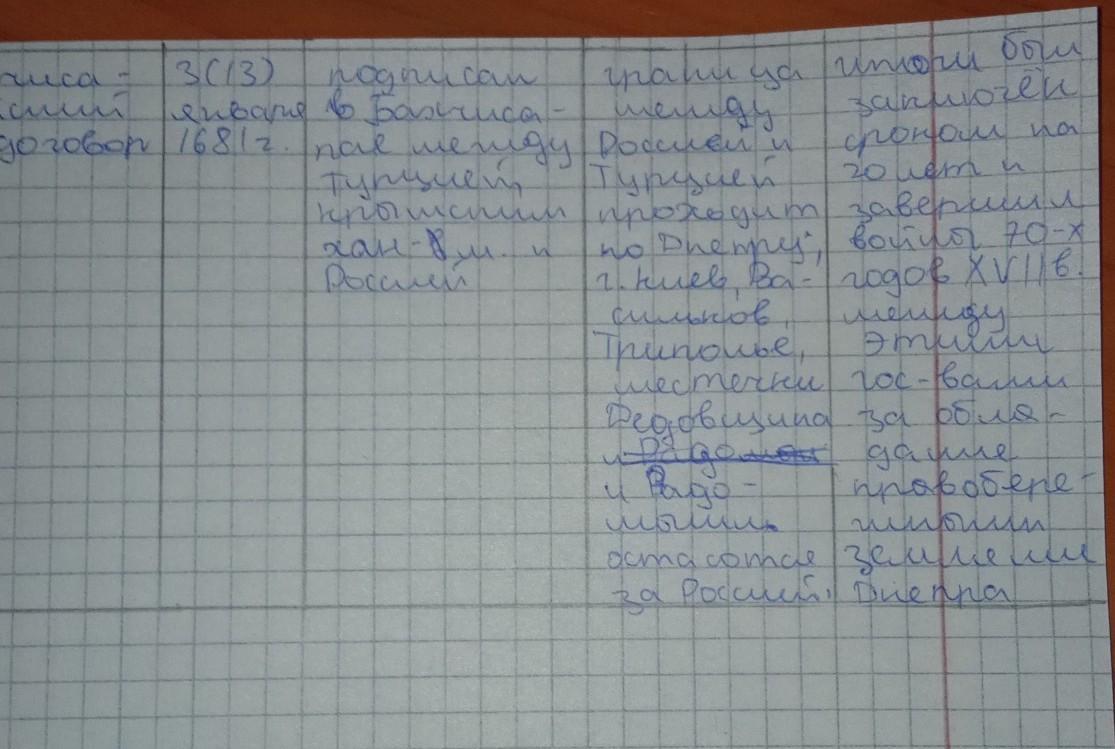 чиса-
ский
договор
3(13)
января
1681г.
подписан
в Бахчиса-
рае между
Турцией,
крымским
хан-вм. и
Россией
граница
между
Россией и
Турцией
проходит
по Днепру;
г. Киев, Ва-
сильков,
Триполье,
местечки
Дедовщина
и Радо-
мышль
остаются
за Россией.
итоги был
заключён
сроком на
20 лет и
завершил
войны 70-х
годов XVII в.
между
этими
гос-вами
за обла-
дание
правобере-
жными
землями
Днепра